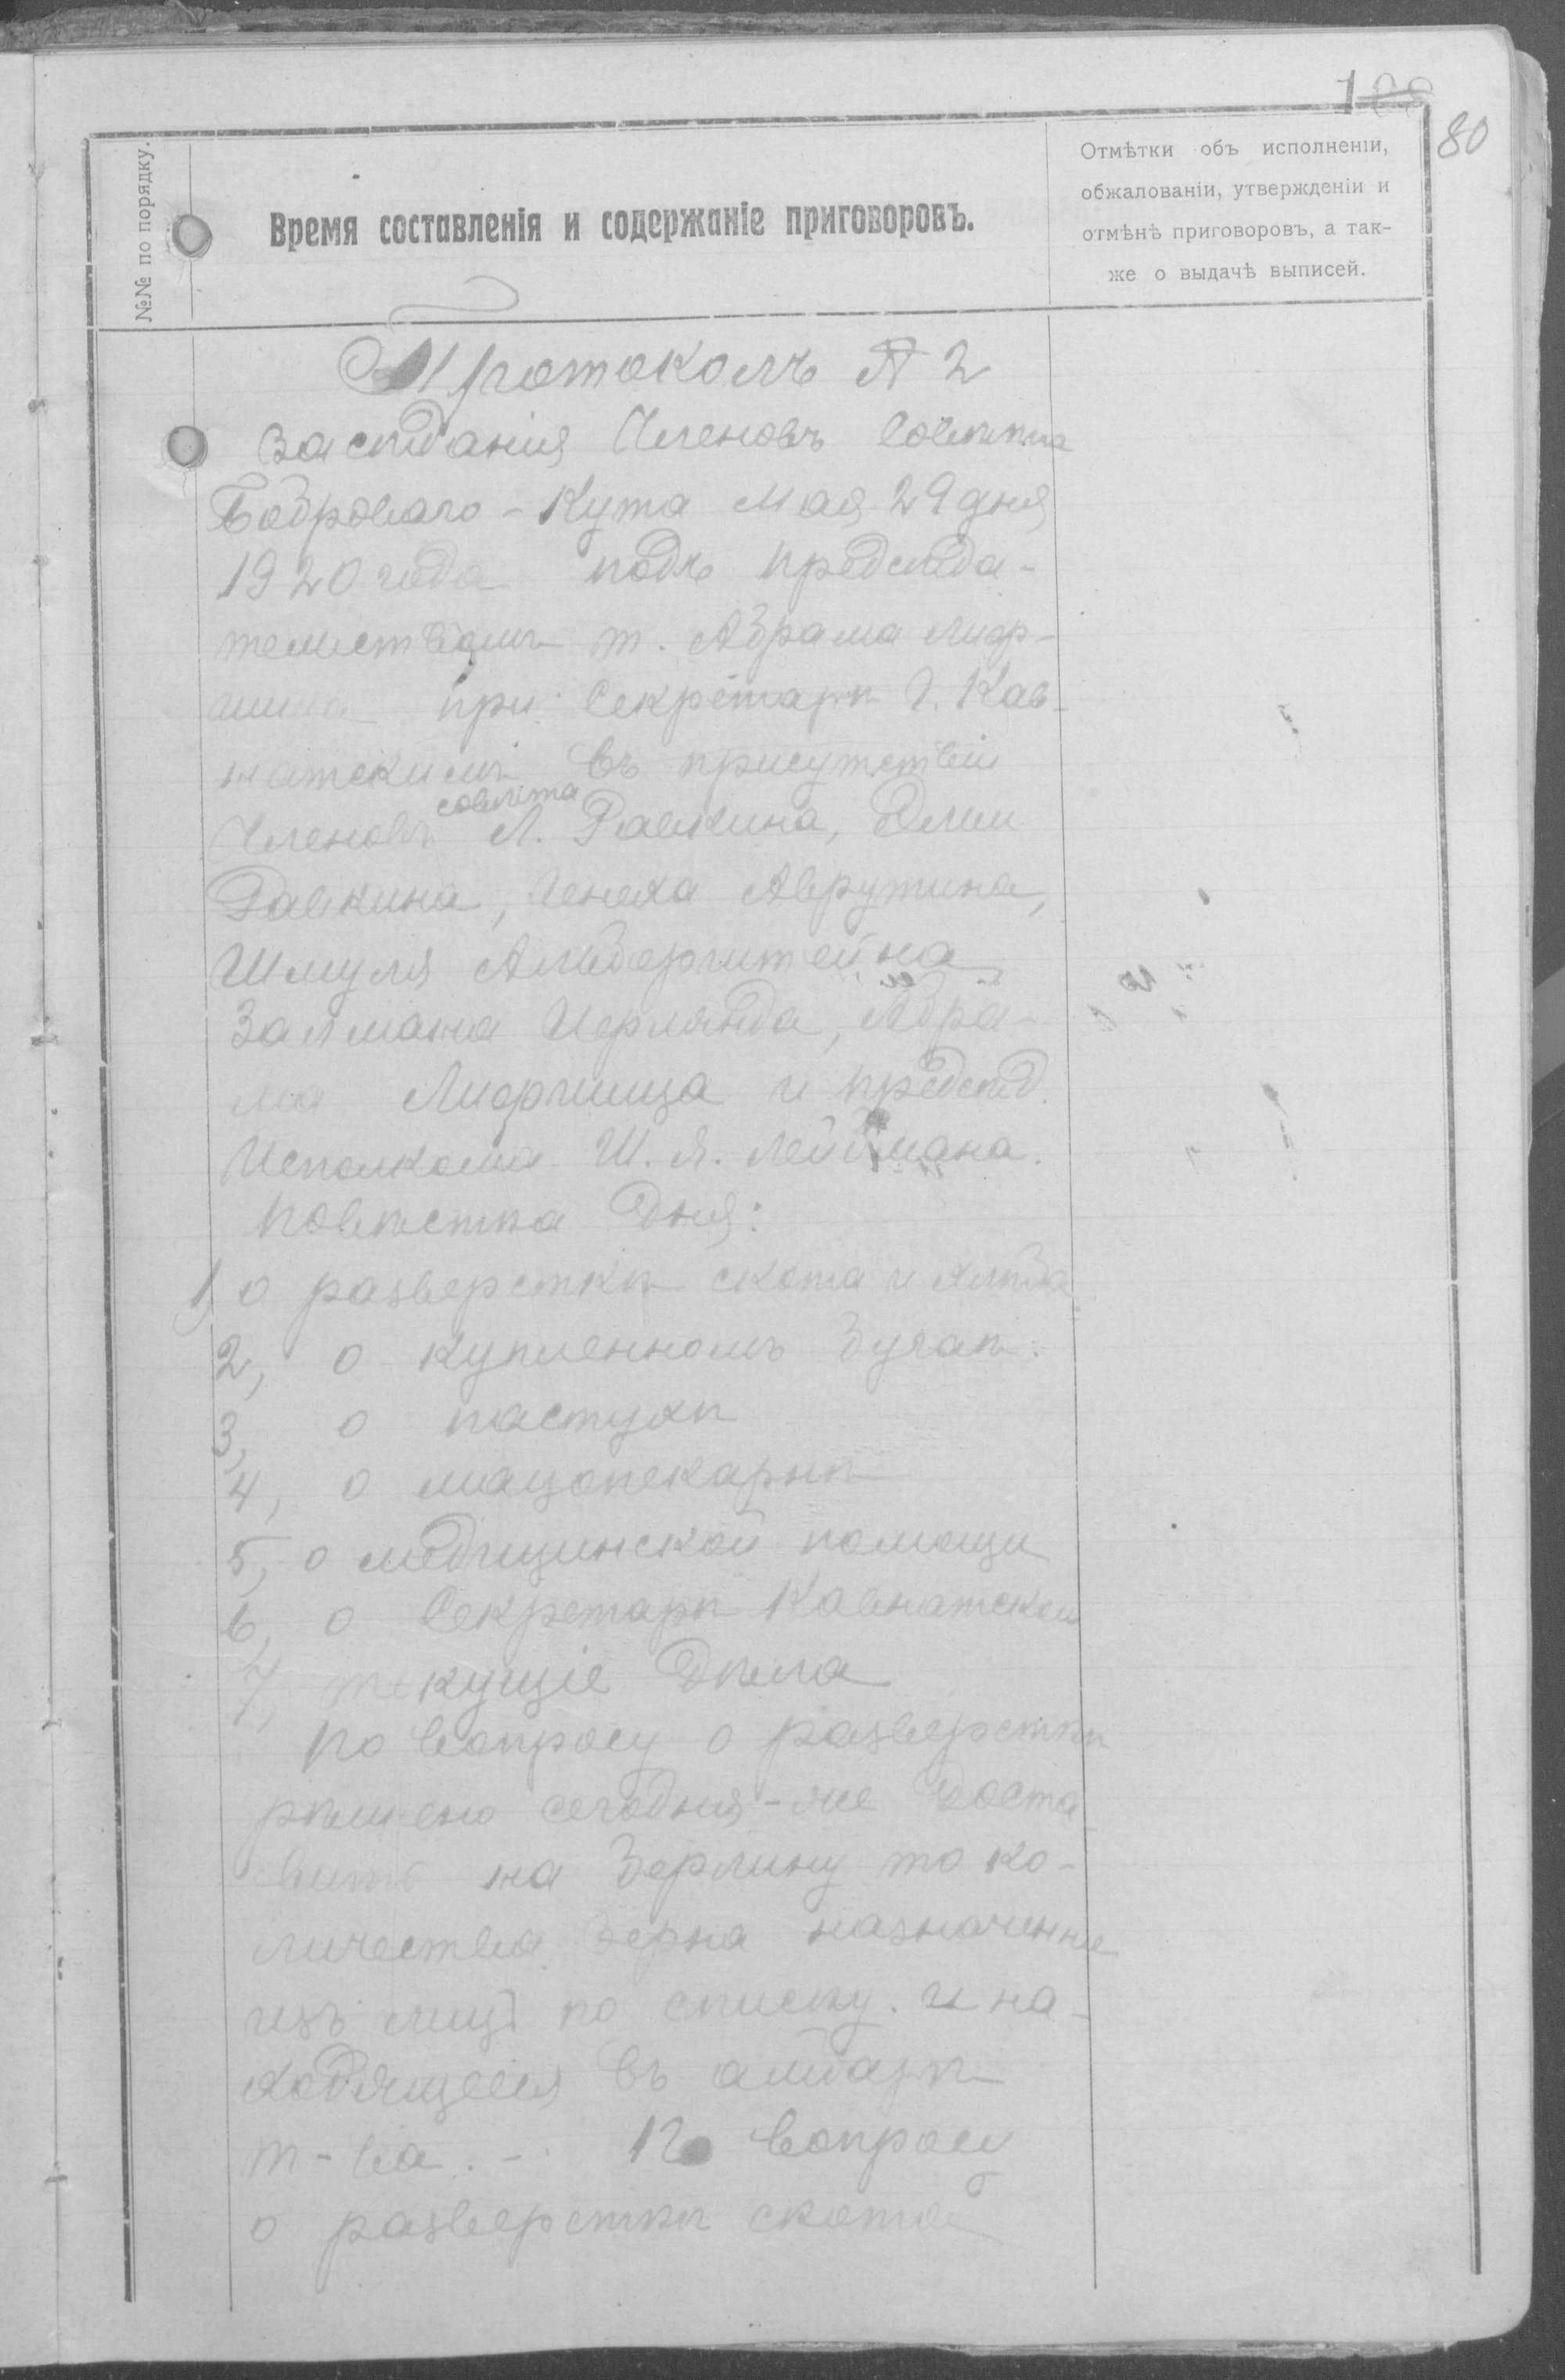 100
80
№№ по порядку.
Время составленія и содержаніе приговоровъ.
Отмѣтки объ исполненіи,
обжалованіи, утвержденіи и
отмѣнѣ приговоровъ, а так-
же о выдачѣ выписей.
Протоколъ № 2
Засѣданія Членовъ Совѣта
Боброваго-Кута мая 29 дня
1920 года подъ предсѣда-
тельствомъ т. Абрама Лиф-
шица при Секретарѣ Г. Кав-
натскимъ въ присутствіи
совѣта
Членовъ Л. Равкина, Эли
Равкина, Генаха Аврутина,
Шмуля Альберштейна
Залмана Иерлянда, Абра-
ма Лифшица и предсѣд.
Исполкома Ш. Я. Лейбмана.
Повѣстка дня:
1, о разверсткѣ скота и хлѣба
2, о купленномъ Бугаѣ.
3, о пастухѣ
4, о мацопекарнѣ
5, о медицинской помощи
6, о Секретарѣ Кавнатском
7, текущіе дѣла
По вопросу о разверсткѣ
рѣшено сегодня-же доста
вить на Берлину то ко-
личества зерна назначенне
изъ лицъ по списку. и на-
ходящееся въ амбарѣ
т-ва. - По вопросу
о разверсткѣ скота